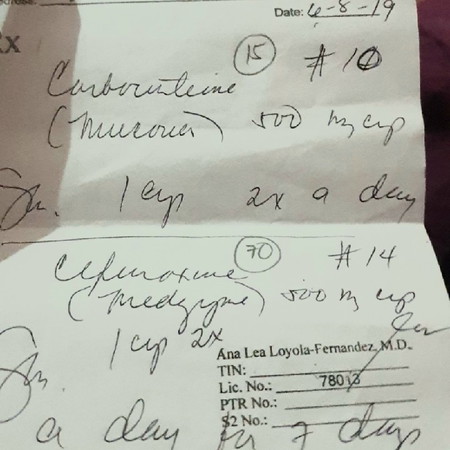 Date: 6-8-19
Rx
15 #10
Carbocisteine
(Mucovia) 500 mg cap
Sig. 1 cap 2x a day
70 #14
Cefuroxime
(Medzyme) 500 mg cap
Sig. 1 cap 2x
Ana Lea Loyola-Fernandez, M.D.
TIN:
Lic. No.: 78013
PTR No.:
S2 No.:
a day for 7 days